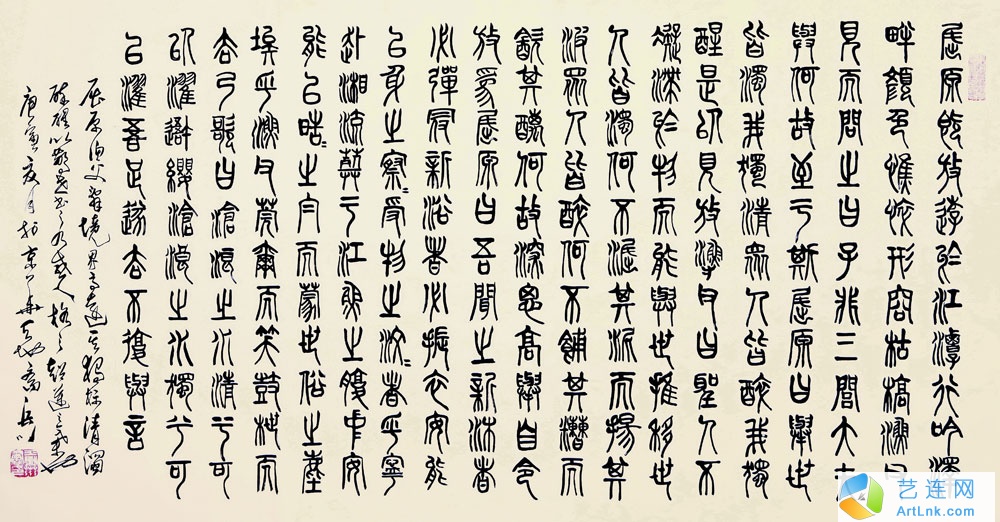 屈原既放游於江潭行吟澤
畔顏色憔悴形容枯槁漁父
見而問之曰子非三閭大夫
與何故至于斯屈原曰舉世
皆濁我獨清眾人皆醉我獨
醒是以見放漁父曰聖人不
凝滯於物而能與世推移世
人皆濁何不淈其泥而揚其
波眾人皆醉何不餔其糟而
歠其醨何故深思高舉自令
放為屈原曰吾聞之新沐者
必彈冠新浴者必振衣安能
以身之察=受物之汶=者乎寧
赴湘流葬于江魚之腹中安
能以皓=之白而蒙世俗之塵
埃乎漁父莞爾而笑鼓枻而
去乃歌曰滄浪之水清兮可
以濯吾纓滄浪之水濁兮可
以濯吾足遂去不復與言
屈原漁父辭境界高遠其獨標清濁
醉醒以警世
庚寅夏月於京華
艺连网
ArtLnk.com